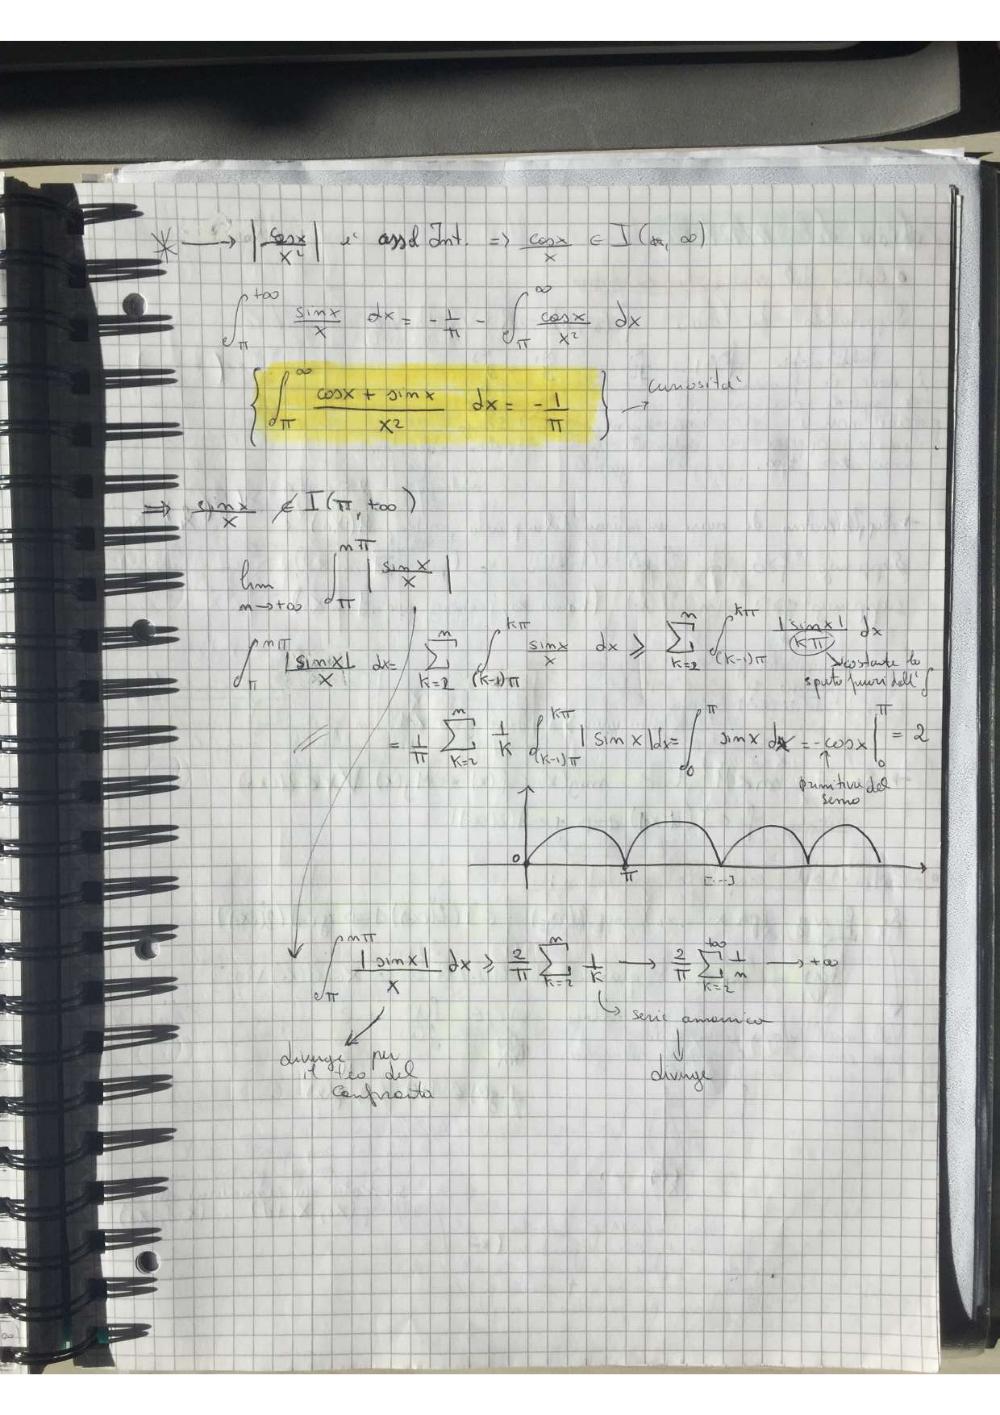 * → |cosx/x²| è assol Int. ⇒ cosx/x ∈ I(π, ∞)
∫_π^{+∞} sinx/x dx = -1/π - ∫_π^∞ cosx/x² dx
{∫_π^∞ (cosx + sinx)/x² dx = -1/π} → curiosità
⇒ sinx/x ∉ I(π, +∞)
lim_{n→+∞} ∫_π^{nπ} |sinx/x|
∫_π^{nπ} |sinx|/x dx = ∑_{k=2}^n ∫_{(k-1)π}^{kπ} sinx/x dx ⩾ ∑_{k=2}^n ∫_{(k-1)π}^{kπ} |sinx|/kπ dx
costante lo
sputo fuori dall'∫
= 1/π ∑_{k=2}^n 1/k ∫_{(k-1)π}^{kπ} |sinx|dx = ∫_0^π sinx dx = -cosx|_0^π = 2
primitiva del
seno
0 π [...]
∫_π^{nπ} |sinx|/x dx ⩾ 2/π ∑_{k=2}^n 1/k → 2/π ∑_{k=2}^{+∞} 1/n → +∞
serie armonica
diverge per
il teo del
confronto
diverge